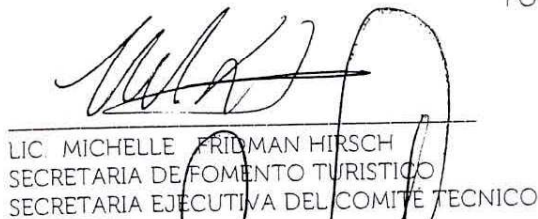 LIC. MICHELLE FRIDMAN HIRSCH
SECRETARIA DE FOMENTO TURISTICO
SECRETARIA EJECUTIVA DEL COMITÉ TECNICO